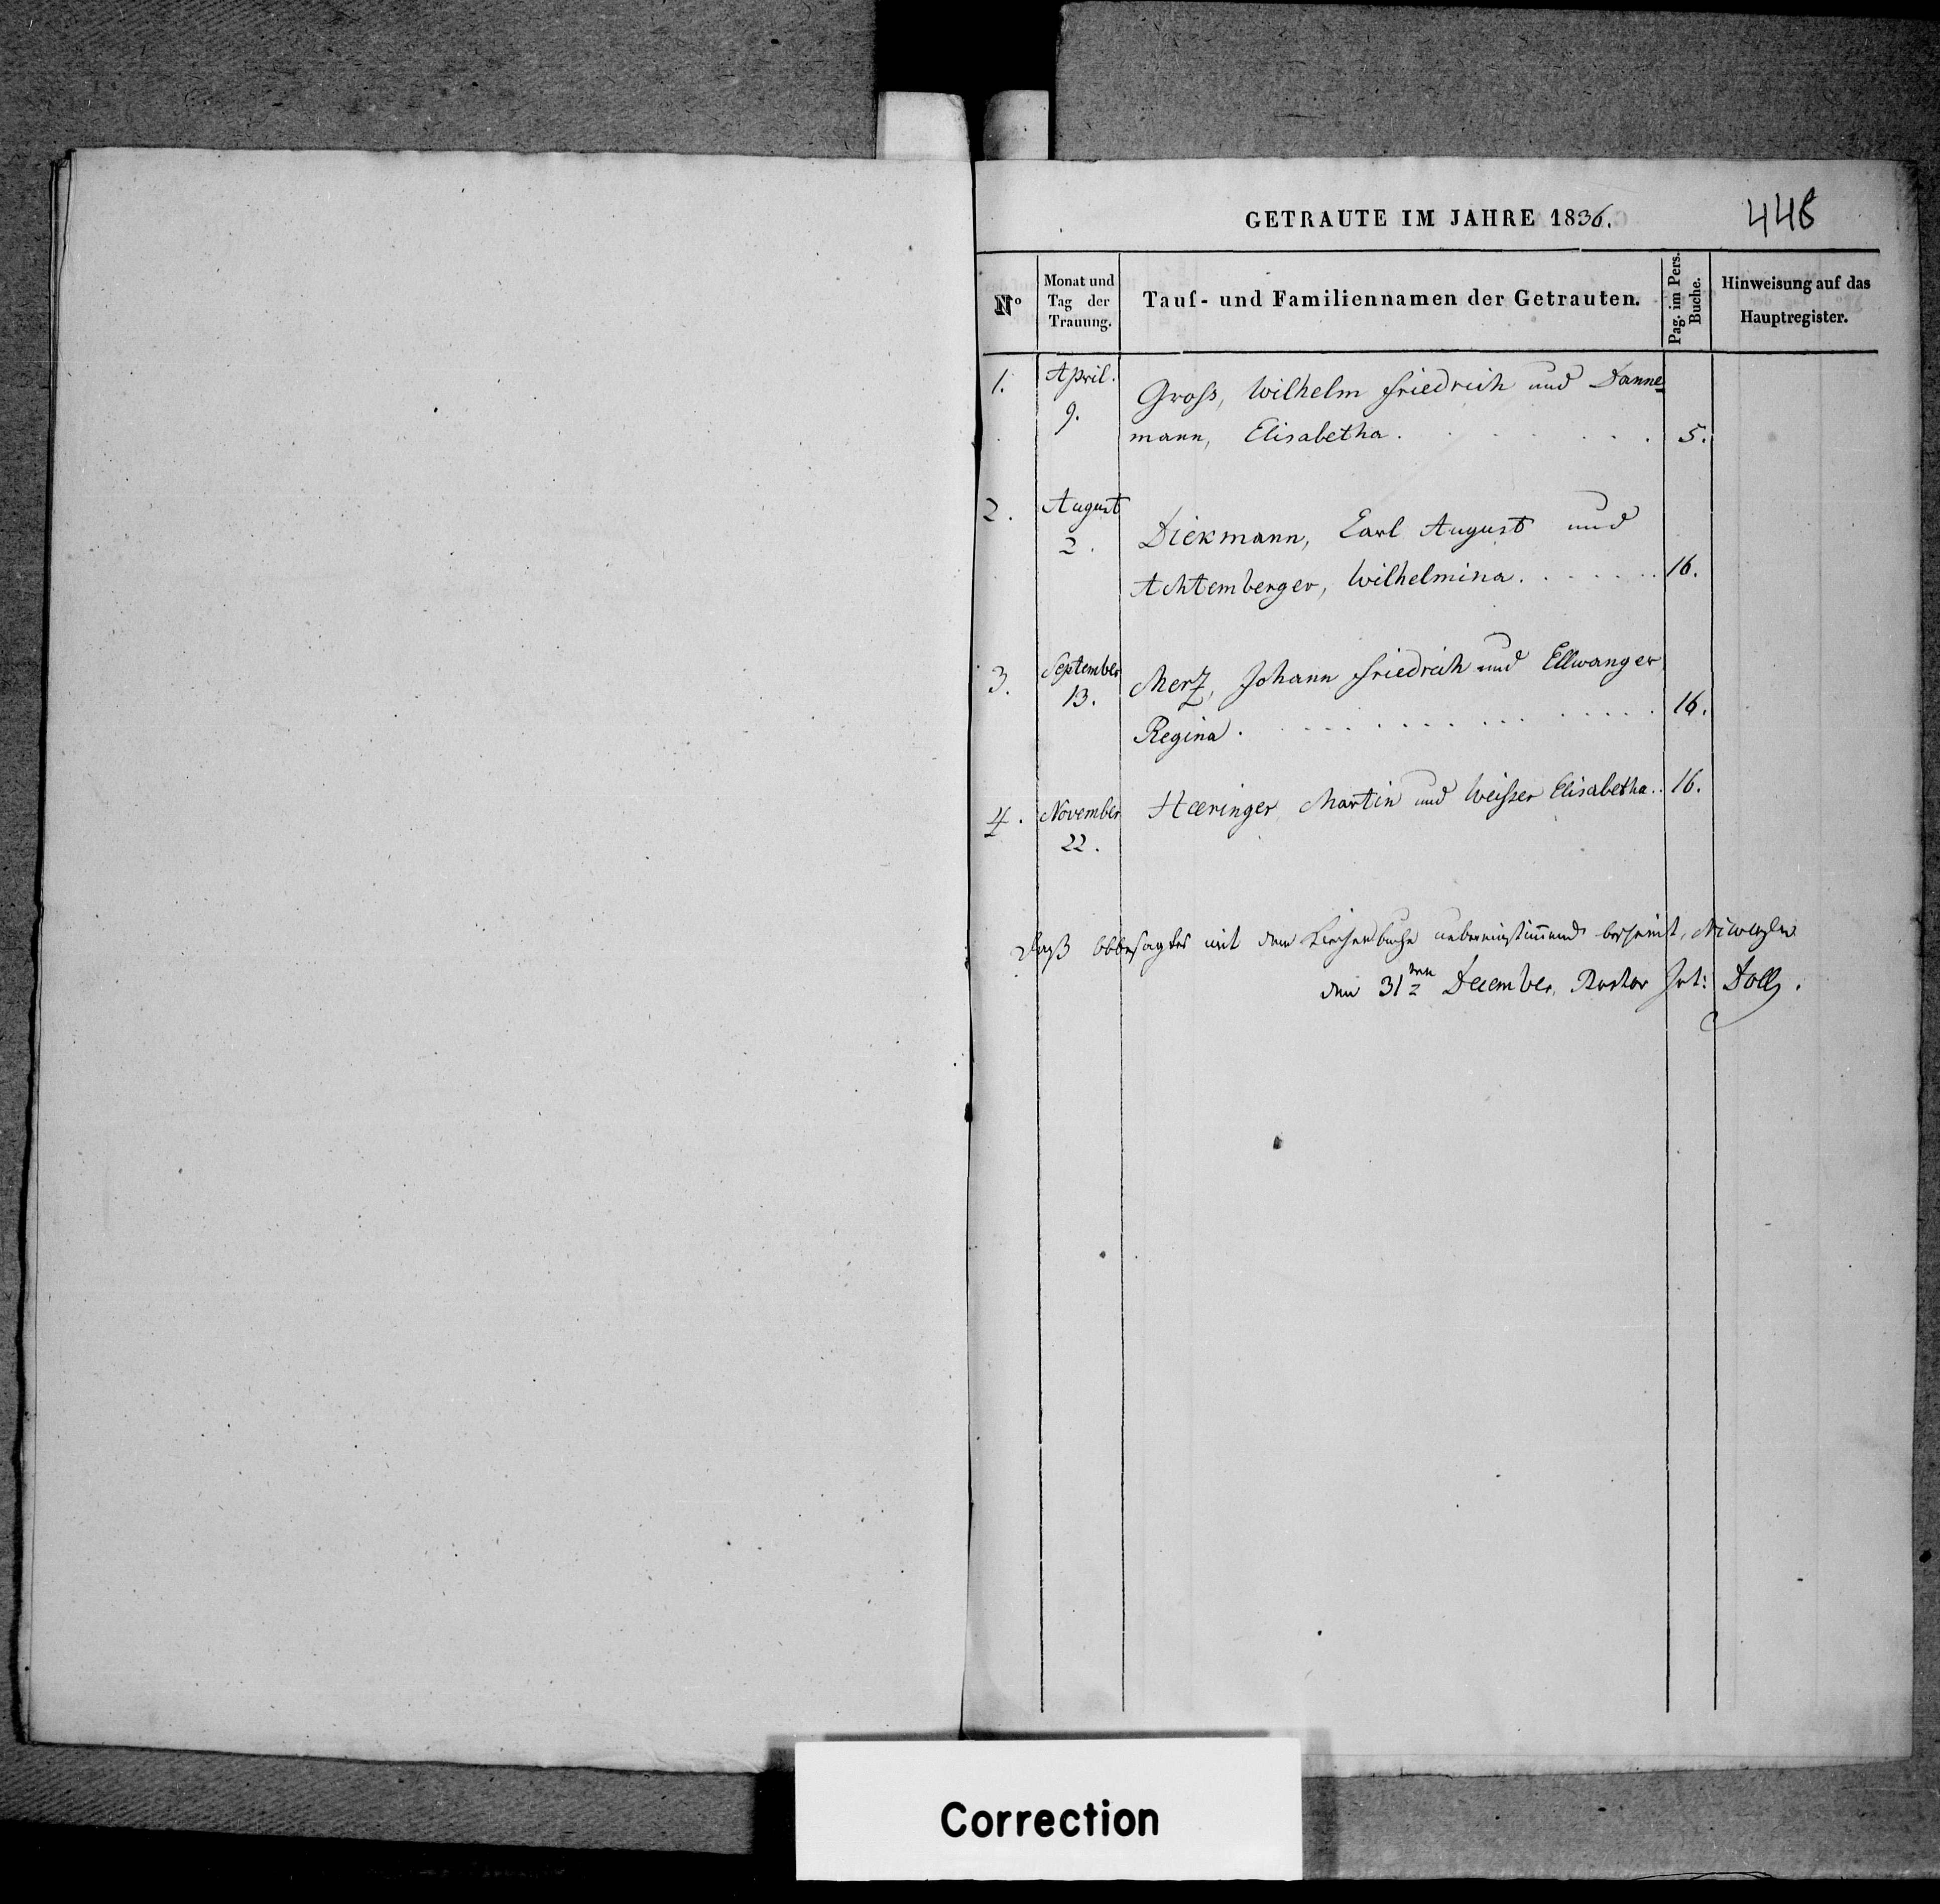 GETRAUTE IM JAHRE 1836.
448
No
Monat und
Tag der
Trauung.
Tauf- und Familiennamen der Getrauten.
Pag. im Pers.
Buche.
Hinweisung auf das
Hauptregister.
1. April. Gross, Wilhelm Friedrich und Danne=
9. mann, Elisabetha . . . . . . . 5.
2. August Diekmann, Carl August und
2. Achtemberger, Wilhelmina . . . . . . . 16.
3. September Merz, Johann Friedrich und Ellwanger
13. Regina . . . . . . . . . . . . 16.
4. November Haeringer Martin und Weisser Elisabetha . . 16.
22.
Daß obbesagtes mit dem Kirchenbuche uebereinstimmend
den 31ten December, Pastor Doll.
Correction